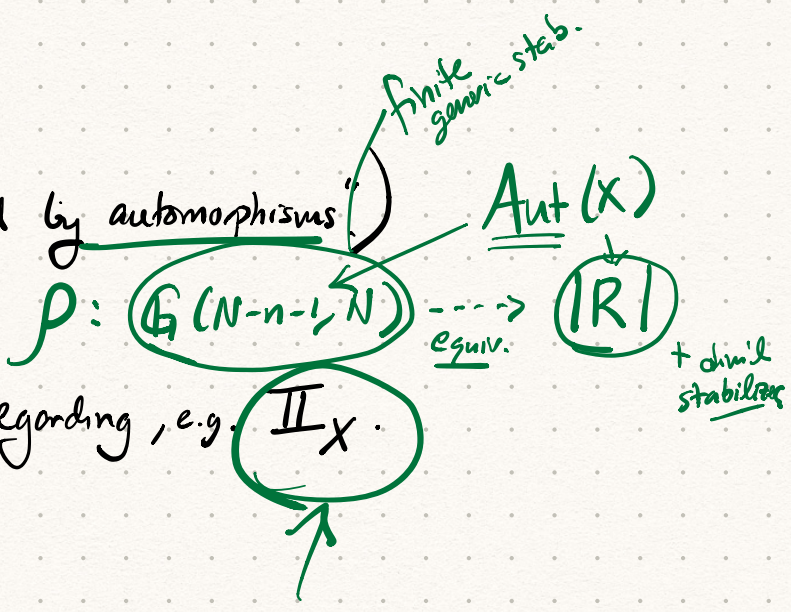 finite
generic stab.
by automorphisms")
Aut(X)
ρ: G(N-n-1, N) ---> |R|
equiv.
+ dim'l
stabilizer
regarding, e.g. II_X.